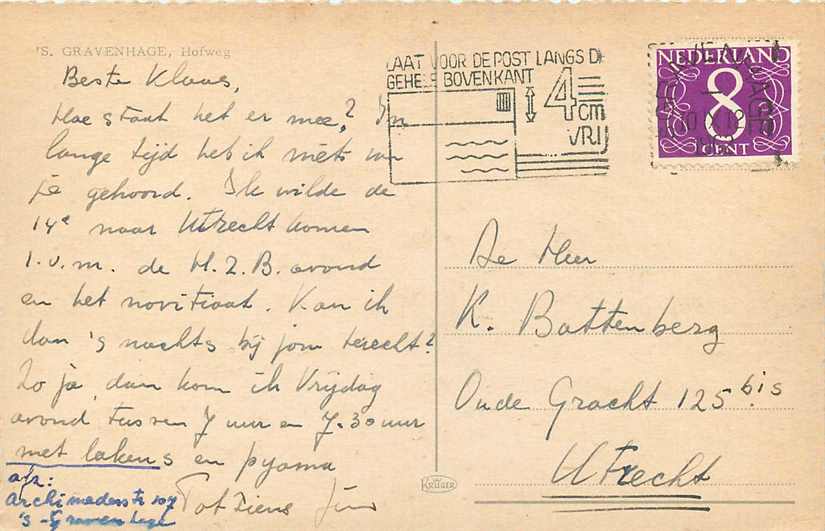 'S. GRAVENHAGE, Hofweg
Beste Klaas,
Hoe staat het er mee? In
lange tijd heb ik niets van
je gehoord. Ik wilde de
14e naar Utrecht komen
i.v.m. de H.Z.B. avond
en het novitiaat. Kan ik
dan 's nachts bij jou terecht?
Zo ja, dan kom ik Vrijdag
avond tussen 7 uur en 7.30 uur
met lakens en pyama
Tot Ziens
afz:
Archimedesstr 107
's-Gravenhage
LAAT VOOR DE POST LANGS DE
GEHELE BOVENKANT
4
cm
VRIJ
NEDERLAND
8
CENT
De Heer
K. Battenberg
Oude Gracht 125 bis
Utrecht
KRÜGER